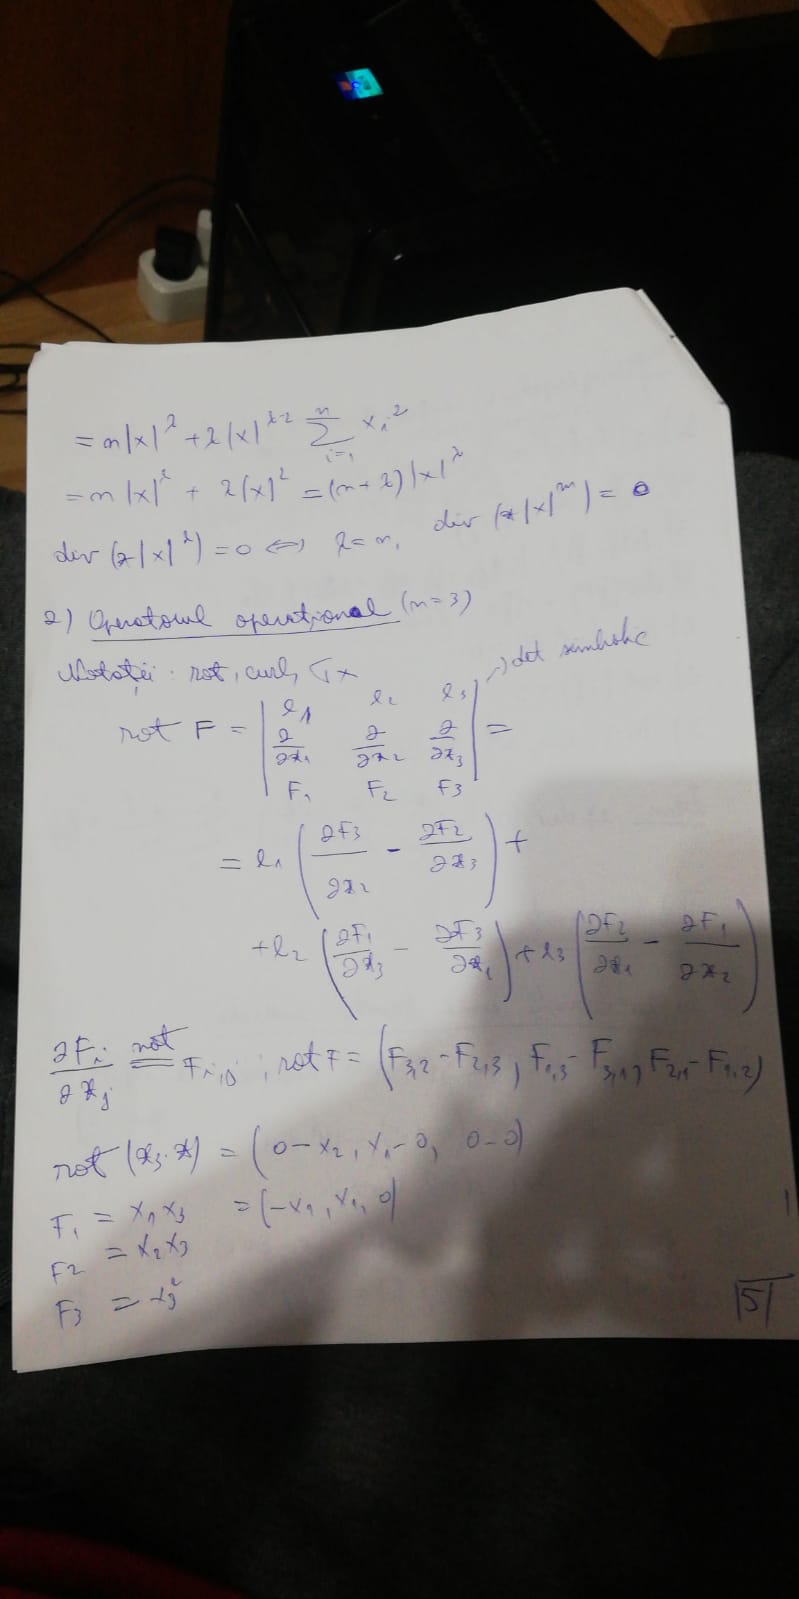 = n|x|^λ + λ|x|^{λ-2} \sum_{i=1}^{n} x_i^2
= n|x|^λ + λ|x|^λ = (n+λ)|x|^λ
div (x|x|^λ) = 0 ⟺ λ = n, div (x|x|^m) = 0
2) Operatorul operațional (n=3)
Notații: rot, curl, ∇x
→ det simbolic
rot F = | e_1 e_2 e_3 |
| ∂/∂x_1 ∂/∂x_2 ∂/∂x_3 | =
| F_1 F_2 F_3 |
= e_1 (∂F_3/∂x_2 - ∂F_2/∂x_3) +
+ e_2 (∂F_1/∂x_3 - ∂F_3/∂x_1) + e_3 (∂F_2/∂x_1 - ∂F_1/∂x_2)
∂F_i/∂x_j \overset{not}{=} F_{i,j} ; rot F = (F_{3,2} - F_{2,3}, F_{1,3} - F_{3,1}, F_{2,1} - F_{1,2})
rot (x_3·x) = (0-x_2, x_1-0, 0-0)
F_1 = x_1x_3 = (-x_1, x_1, 0)
F_2 = x_2x_3
F_3 = x_3^2
5